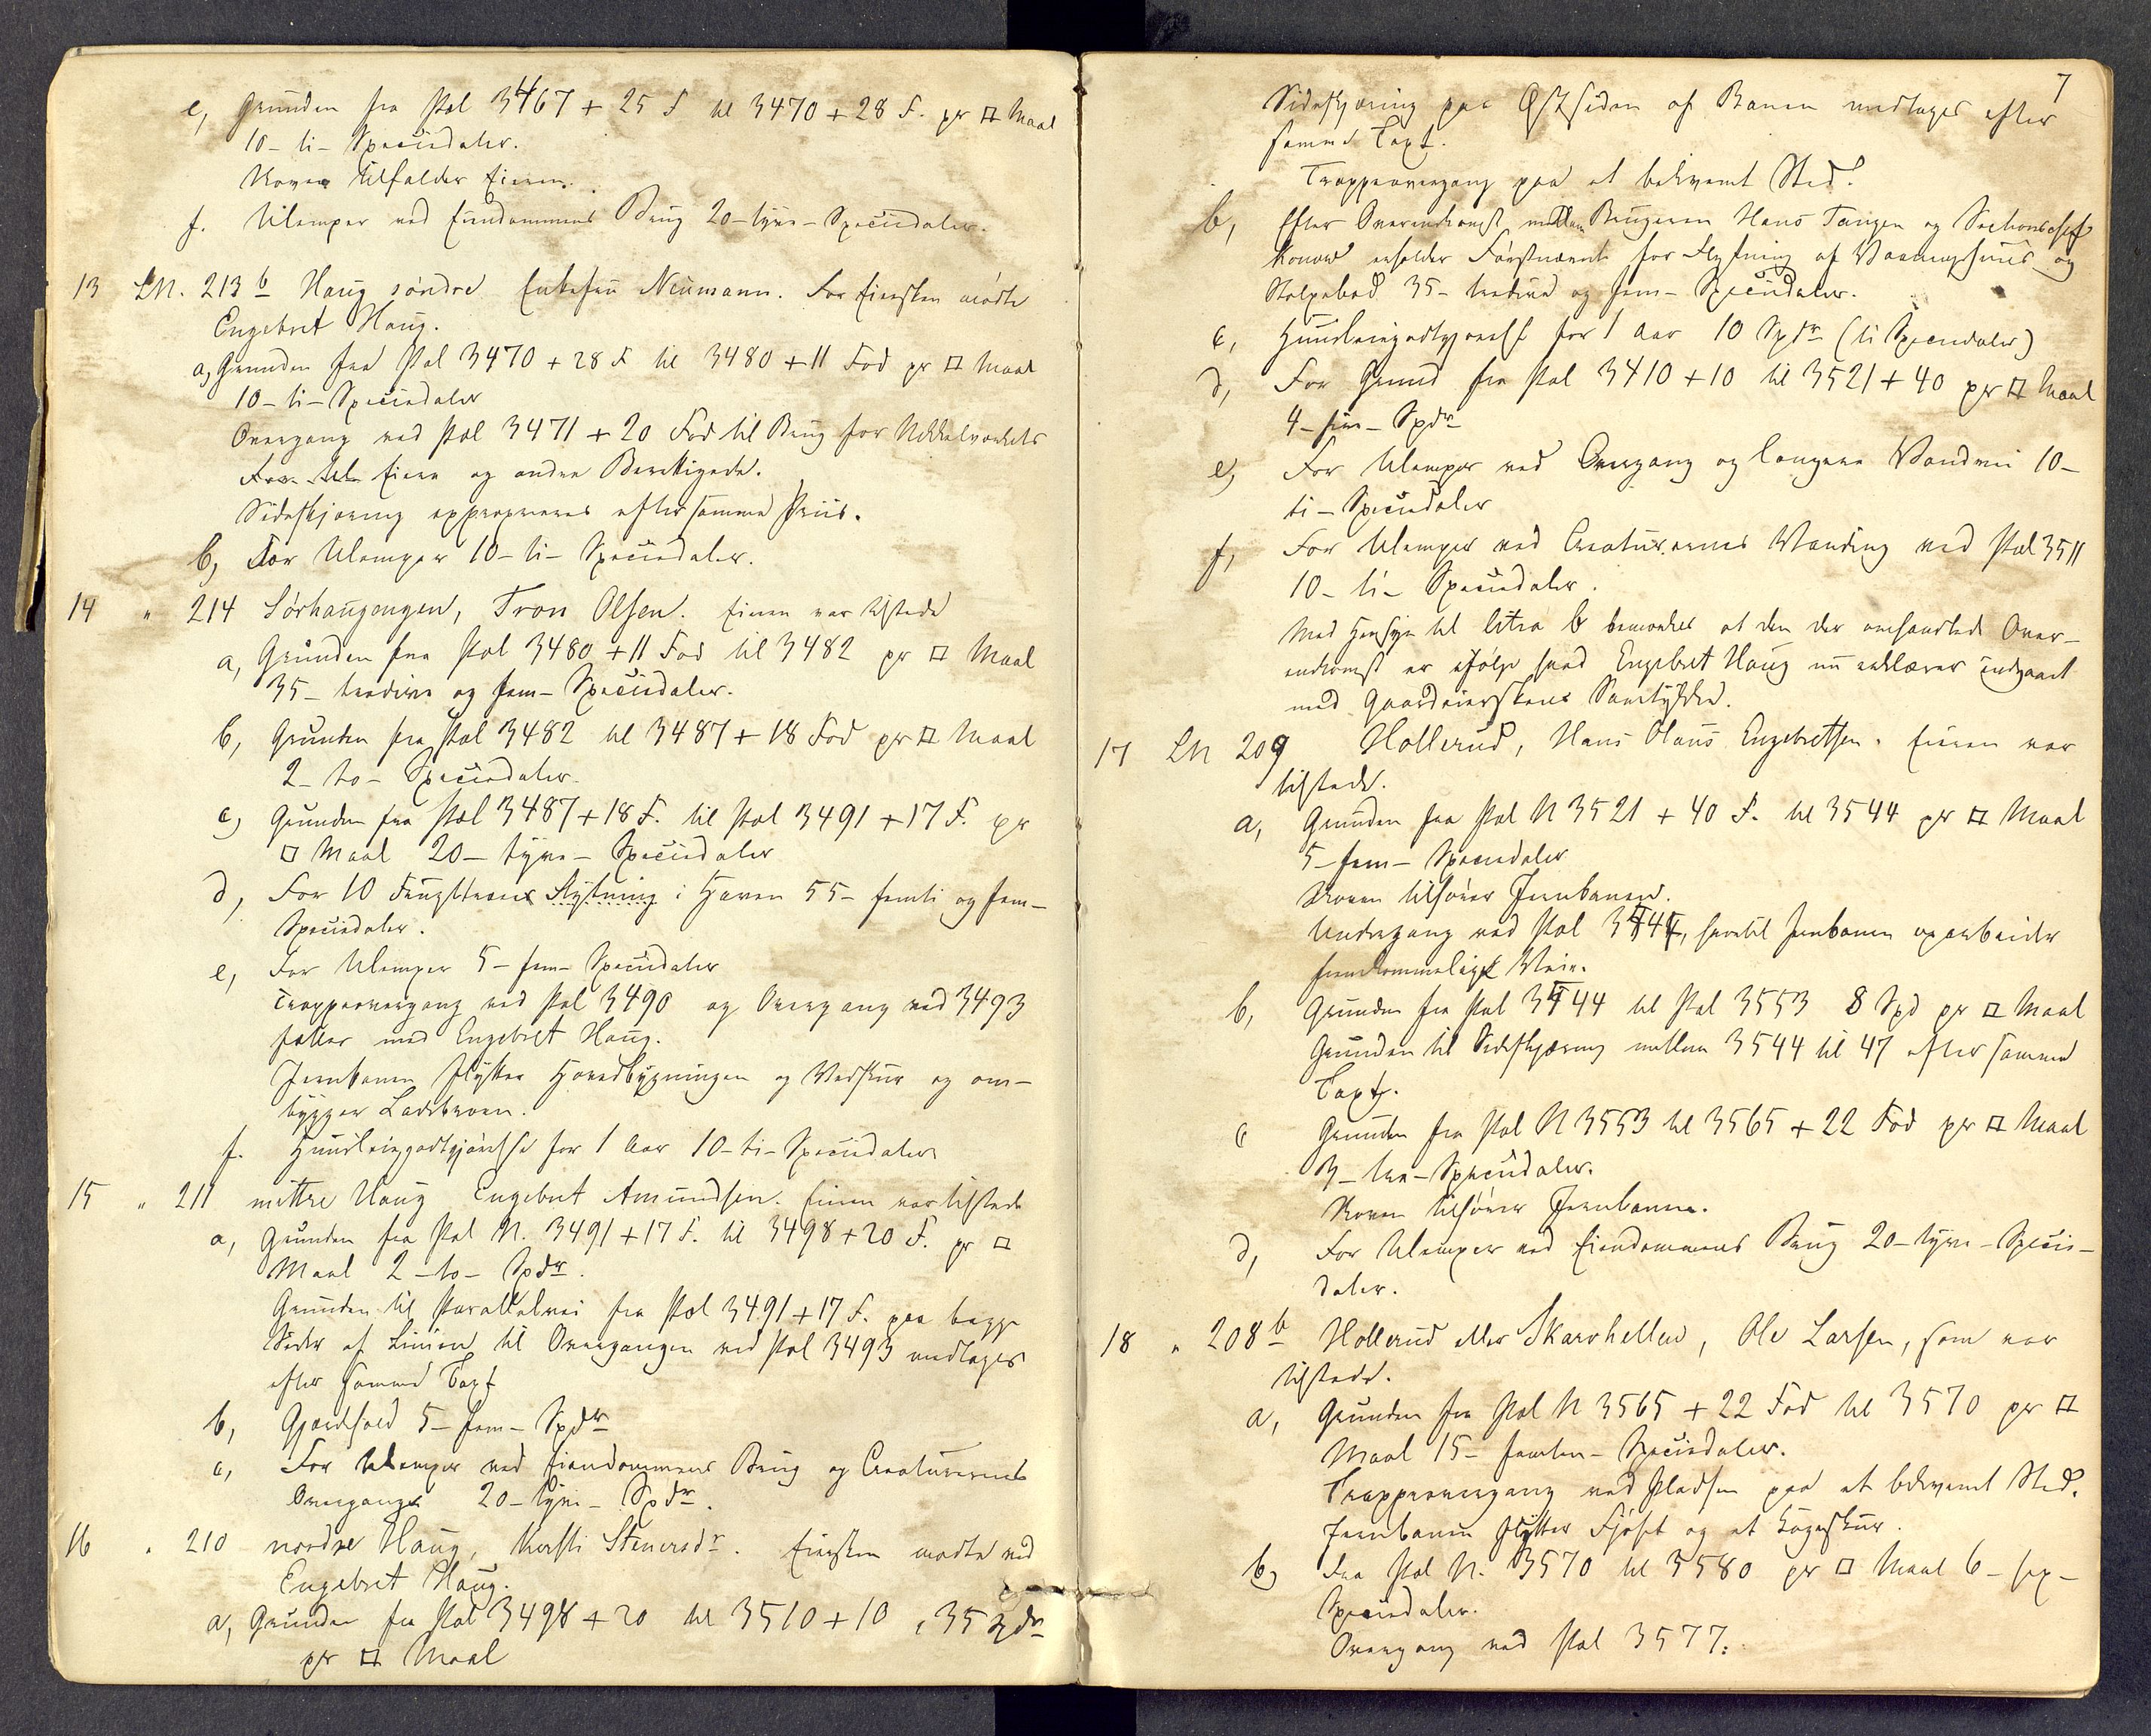 e, Grunden fra Pæl 3467 + 25 F til 3470 + 28 F. pr □ Maal
10 - ti - Speciedaler.
Skoven tilfalder Eieren.
f. Ulemper ved Eiendommens Brug 20 - tyve - Speciedaler.
13 LN. 213 b Haug søndre Enkefru Neumann. For Eiersken mødte
Engebret Haug.
a, Grunden fra Pæl 3470 + 28 F til 3480 + 11 Fod pr □ Maal
10 - ti - Speciedaler
Overgang ved Pæl 3471 + 20 Fod til Brug for Nikkelværkets
Eiere og andre Berettigede.
Sideskjæring exproprieres efter samme Priis.
b, For Ulemper 10 - ti - Speciedaler.
14 " 214 Sørhaugengen, Tron Olsen. Eieren var tilstede
a, Grunden fra Pæl 3480 + 11 Fod til 3482 pr □ Maal
35 - tredive og fem - Speciedaler.
b, Grunden fra Pæl 3482 til 3487 + 18 Fod pr □ Maal
2 - to - Speciedaler.
c, Grunden fra Pæl 3487 + 18 F. til Pæl 3491 + 17 F. pr
□ Maal 20 - tyve - Speciedaler
d, For 10 Frugttræers Flytning i Haven 55 - femti og fem -
Speciedaler.
e, For Ulemper 5 - fem - Speciedaler
Trappeovergang ved Pæl 3490 og Overgang ved 3493
fælles med Engebret Haug.
Jernbanen flytter Hovedbygningen og Vedskur og om-
bygger Ladebroen.
f. Huusleiegodtgjørelse for 1 Aar 10 - ti - Speciedaler
15 " 211 mittre Haug Engebret Amundsen. Eieren var tilstede
a, Grunden fra Pæl N. 3491 + 17 F. til 3498 + 20 F. pr □
Maal 2 - to - Spdr.
Grunden til Parallelvei fra Pæl 3491 + 17 F. paa begge
Sider af Linien til Overgangen ved Pæl 3493 medtages
efter samme Taxt
b, Gjærdehold 5 - fem - Spdr
c, For Ulemper ved Eiendommens Brug og Creaturernes
Overgange 20 - tyve - Spdr.
16 " 210 nordre Haug, Kersti Stenersdr. Eiersken mødte ved
Engebret Haug.
a, Grunden fra Pæl 3498 + 20 til 3510 + 10, 35 Spdr
pr □ Maal
7
Sideskjæring paa Østsiden af Banen medtages efter
samme Taxt.
Trappeovergang paa et bekvemt Sted.
b, Efter Overenskomst mellem Brugeren Hans Tangen og Sectionschef
Konow erholder Førstnævnte for Flytning af Vaaningshuus og
Stolpebod 35 - tredive og fem - Speciedaler.
c, Huusleiegodtgjørelse for 1 Aar 10 Spdr (ti Speciedaler)
d, For Grund fra Pæl 3410 + 10 til 3521 + 40 pr □ Maal
4 - fire - Spdr
e, For Ulemper ved Overgang og længere Vandvei 10 -
ti - Speciedaler
f, For Ulemper ved Creaturernes Vanding ved Pæl 3511
10 - ti - Speciedaler.
Med Hensyn til litra b bemærkes at den der omhandlede Over-
enskomst er ifølge hvad Engebret Haug nu erklærer indgaaet
med Gaardeierskens Samtykke.
17 LN 209 Hollerud, Hans Olaus Engebretsen. Eieren var
tilstede.
a, Grunden fra Pæl N 3521 + 40 F. til 3544 pr □ Maal
5 - fem - Speciedaler
Skoven tilhører Jernbanen.
Undergang ved Pæl 3544, hvortil Jernbanen oparbeider
fremkommelig Vei.
b, Grunden fra Pæl 3544 til Pæl 3553 8 Spd pr □ Maal
Grunden til Sideskjæring mellem 3544 til 47 efter samme
Taxt.
c Grunden fra Pæl N 3553 til 3565 + 22 Fod pr □ Maal
3 - tre - Speciedaler.
Skoven tilhører Jernbanen.
d, For Ulemper ved Eiendommens Brug 20 - tyve - Specie-
daler.
18 " 208 b Hollerud eller Skarvhellen, Ole Larsen, som var
tilstede.
a, Grunden fra Pæl N 3565 + 22 Fod til 3570 pr □
Maal 15 - femten - Speciedaler.
Trappeovergang ved Pladsen paa et bekvemt Sted.
Jernbanen flytter Fjøset og et Høgeskur.
b, Fra Pæl N. 3570 til 3580 pr □ Maal 6 - sex -
Speciedaler.
Overgang ved Pæl 3577.